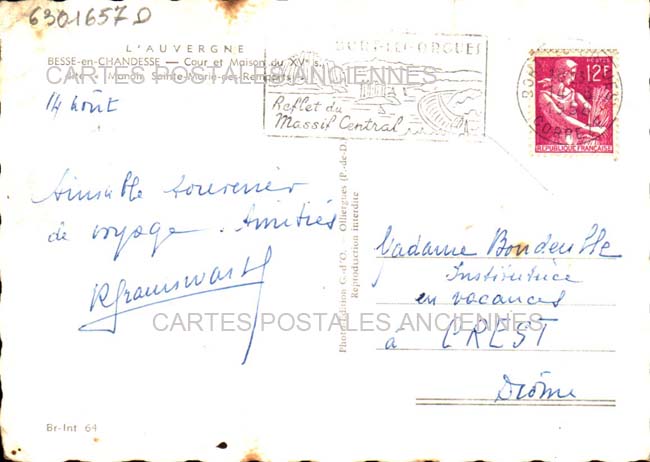 6301657D
L'AUVERGNE
BESSE-en-CHANDESSE — Cour et Maison du XVe s.
Manoir Sainte-Marie-des-Remparts
CARTES POSTALES ANCIENNES
BORT-LES-ORGUES
Reflet du
Massif Central
12F
POSTES
REPUBLIQUE FRANÇAISE
CORREZE
14 Août
Aimable souvenir
de voyage. Amitiés
Photo-Edition G.-d'O. — Olliergues (P.-de-D.)
Reproduction interdite
Madame
Institutrice
en vacances
à CREST
Drôme
CARTES POSTALES ANCIENNES
Br-Int 64